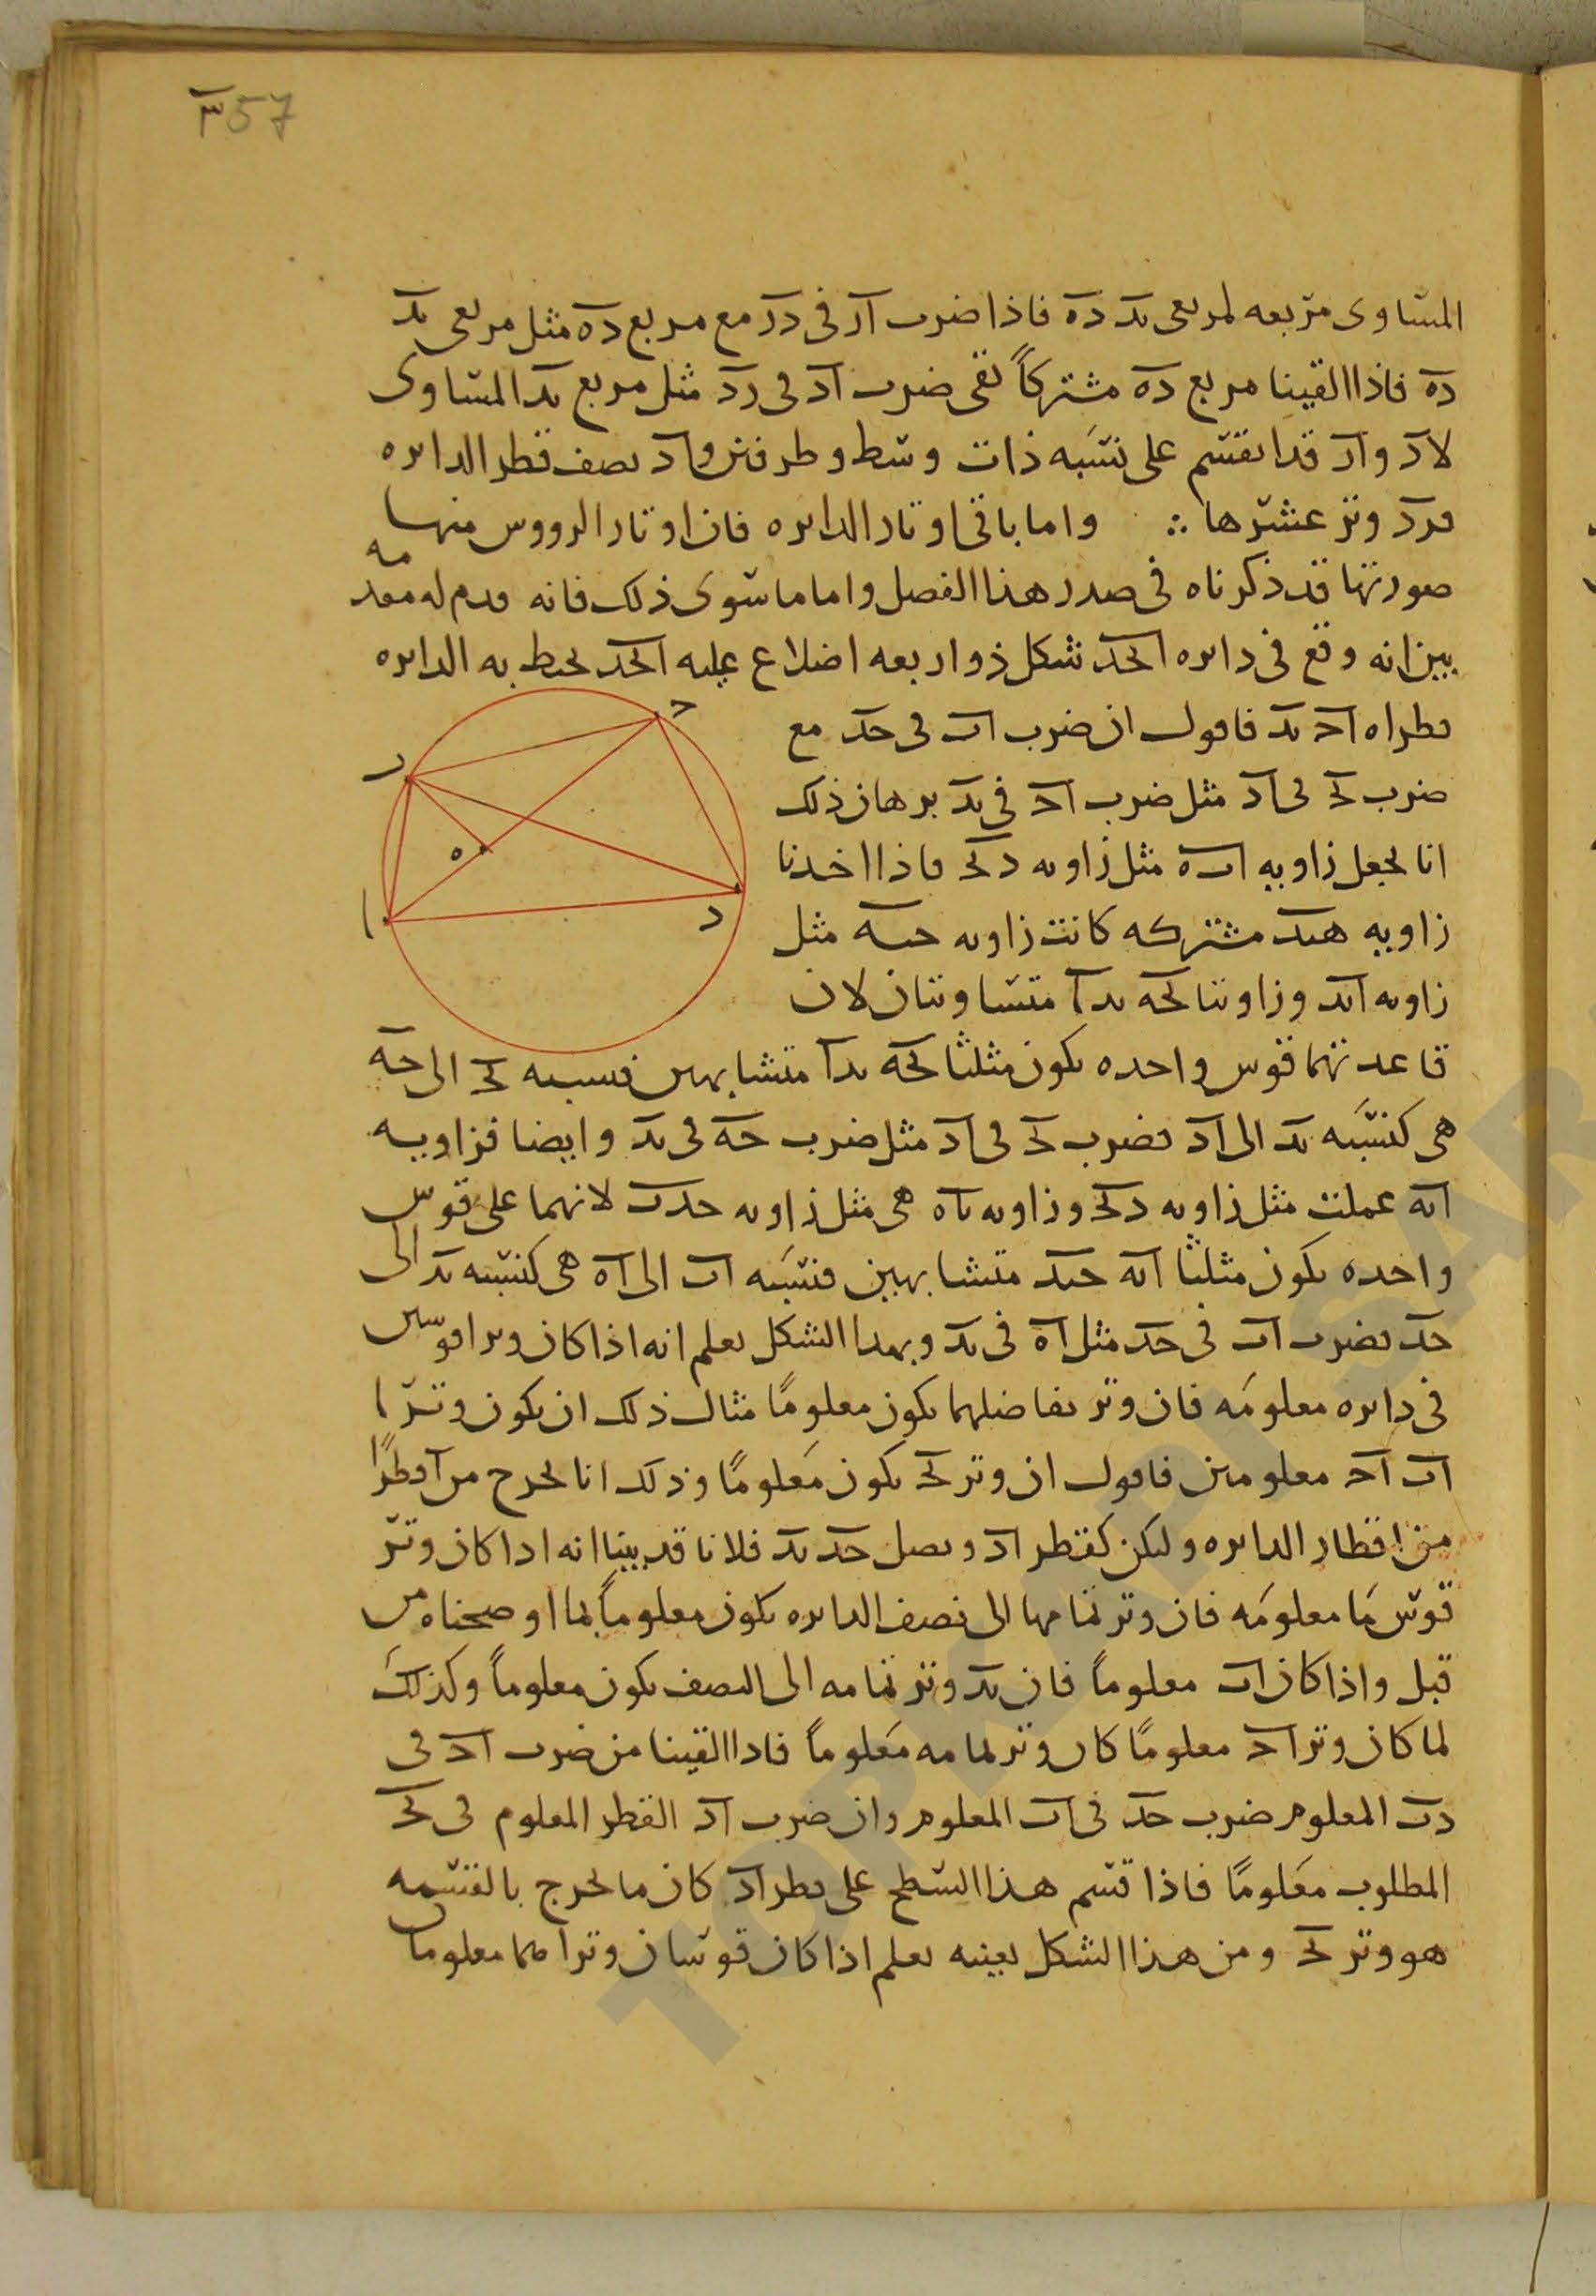 ٣ 57
المساوى مربعه لمربعى ىد ده فاذا ضرب ار فى در مع مربع ده مثل مربعى ىد
ده فاذا القينا مربع ده مشتركاً ىقى ضرب اد فى رد مثل مربع ىد المساوى
لار وار قد انقسم على نسبه ذات وسط وطرفين واد نصف قطر الدايره
فرد وتر عشرها ؞ واما باقى اوتار الدايره فان اوتار الرووس منها
صورتها قد ذكرناه فى صدر هذا الفصل واما ما سوى ذلك فانه ىدم له مقدمه
ىبين انه وقع فى دايره ابحد شكل ذو اربعه اضلاع عليه ابحد يحيط به الدايره
قطراه اح بد فاقول ان ضرب اب فى حد مع
ضرب بح فى اد مثل ضرب اح فى بد برهان ذلك
انا نجعل زاويه ابه مثل زاويه دبح فاذا اخذنا
زاويه هبد مشتركه كانت زاويه حبه مثل
زاويه ابد وزاويتا بحه بدا متساويتان لان
قاعدتهما قوس واحده يكون مثلثا بحه بدا متشابهين فنسبه بح الى حه
هى كنسبه بد الى اد فضرب بح فى اد مثل ضرب حه فى بد وايضا فزاويه
ابه عملت مثل زاويه دبح وزاويه باه هى مثل زاويه حدب لانهما على قوس
واحده يكون مثلثا ابه حبد متشابهين فنسبه اب الى اه هى كنسبه بد الى
حد فضرب اب فى حد مثل اه فى بد وبهذا الشكل يعلم انه اذا كان وترا قوسين
فى دايره معلومه فان وتر تفاضلهما يكون معلومًا مثال ذلك ان يكون وترا
اب اح معلومين فاقول ان وتر بح يكون معلومًا وذلك انا نخرج من ا قطرًا
من اقطار الدايره وليكن كقطر اد ونصل حد بد فلانا قد بينا انه اذا كان وتر
قوس ما معلومه فان وتر تمامها الى نصف الدايره يكون معلوماً بما اوضحناه من
قبل واذا كان اب معلوماً فان بد وتر تمامه الى النصف يكون معلوماً وكذلك
لما كان وتر اح معلومًا كان وتر تمامه معلوماً فاذا القينا من ضرب اح فى
دب المعلوم ضرب حد فى اب المعلوم وان ضرب اد القطر المعلوم فى بح
المطلوب معلومًا فاذا قسم هذا السطح على قطر اد كان ما يخرج بالقسمه
هو وتر بح ومن هذا الشكل بعينه يعلم اذا كان قوسان وتراهما معلومان
ح
ب
ه
ا
د